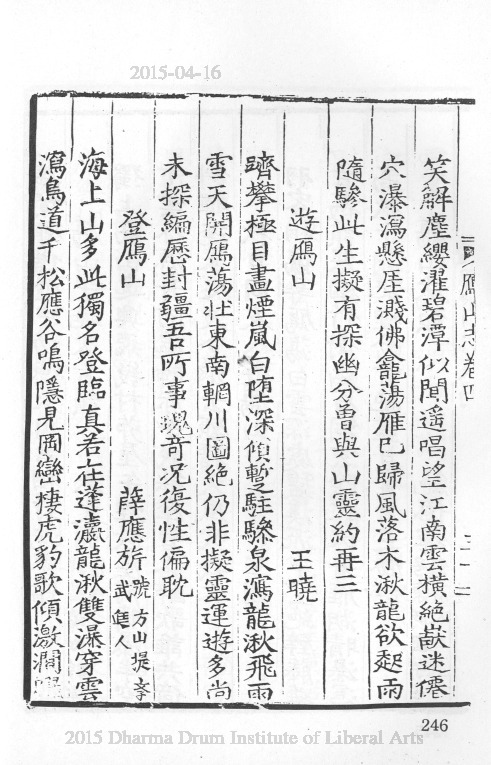 2015-04-16
鴈山志卷四
笑解塵纓濯碧潭似聞遥唱望江南雲橫絶巘迷僊
穴瀑瀉懸厓濺佛龕蕩雁已歸風落木湫龍欲起雨
隨驂此生擬有探幽分曾與山靈約再三
遊鴈山 王曉
躋攀極目盡煙嵐白堕深傾蹔駐驂泉瀉龍湫飛雨
雪天開鴈蕩壯東南輞川圖絶仍非擬靈運遊多尚
未探編歷封疆吾所事瑰竒况復性偏耽
登鴈山 薛應旂號方山提學武進人
海上山多此獨名登臨真若在蓬瀛龍湫雙瀑穿雲
瀉鳥道千松應谷鳴隱見岡巒棲虎豹歌傾激瀾
246
2015 Dharma Drum Institute of Liberal Arts